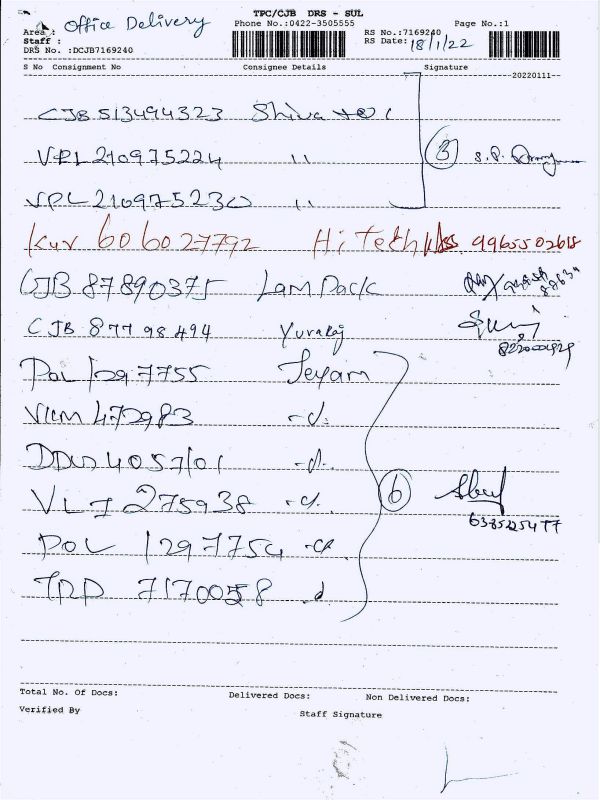 TPC/CJB DRS - SUL
Area : Office Delivery Phone No.:0422-3505555 Page No.:1
Staff : RS No.:7169240
DRS No. :DCJB7169240 RS Date: 18/1/22
S No Consignment No Consignee Details Signature
20220111
CJB 513494323 Shiva
VPL 210975224 " (3) S. P.
VPL 210975230 "
Kur 606027792 Hi Tech 9965502618
CJB 87890375 Lam Pack
CJB 87798494 Yuvaraj
POL 1297755 Jeyam
VKM 472983 -d.
4057101 -d.
275938 -d. (6)
6385225477
POL 1297754 -d.
TRP 7170058 d
Total No. Of Docs: Delivered Docs: Non Delivered Docs:
Verified By Staff Signature